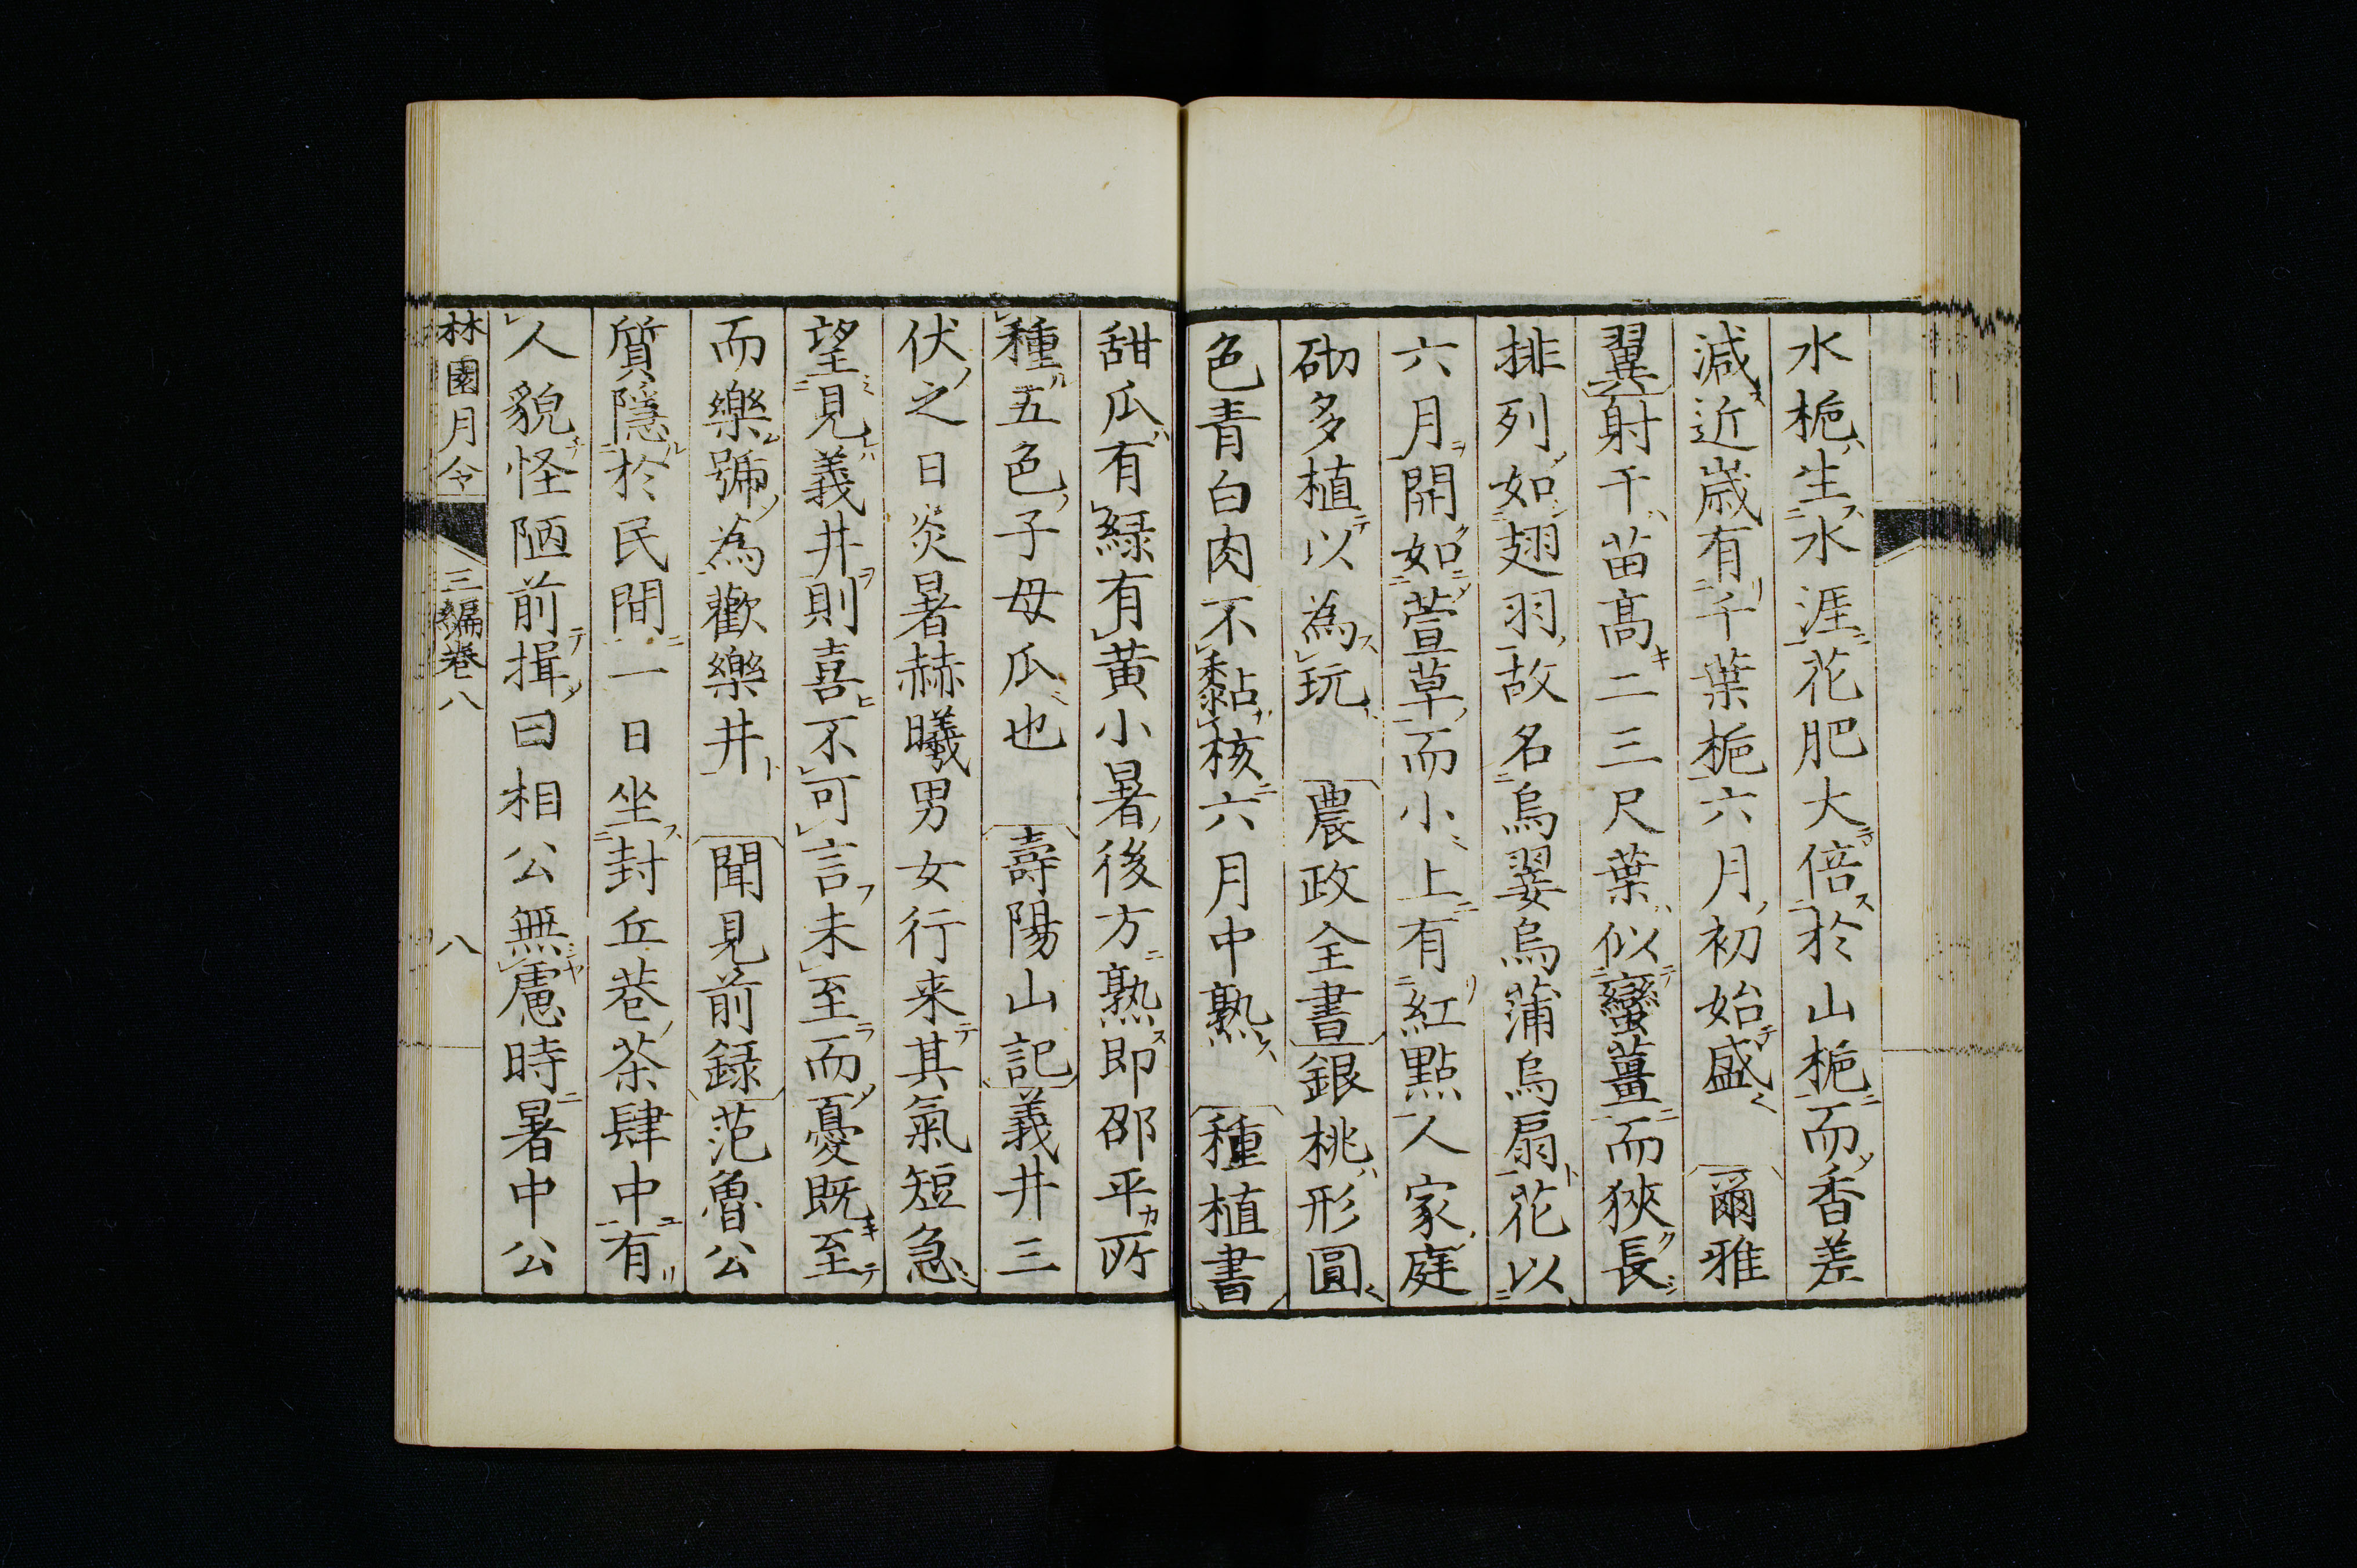 水梔生水涯花肥大倍於山梔而香差
減近歳有千葉梔六月初始盛爾雅
翼射干苗髙二三尺葉似蠻薑而狹長
排列如翅羽故名烏翣烏蒲烏扇花以
六月開如萱草而小上有紅點人家庭
砌多植以為玩農政全書銀桃形圓
色青白肉不黏核六月中熟種植書
甜瓜有緑有黄小暑後方熟即邵平所
種五色子母瓜也壽陽山記義井三
伏之日炎暑赫曦男女行来其氣短急
望見義井則喜不可言未至而憂既至
而樂號為歡樂井聞見前録范魯公
質隱於民間一日坐封丘巷茶肆中有
人貌怪陋前揖曰相公無慮時暑中公
林園月令 三編巻八 八